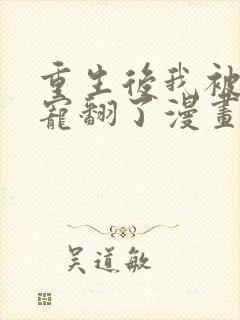 重生後我被
寵翻了漫畫
吳道敏